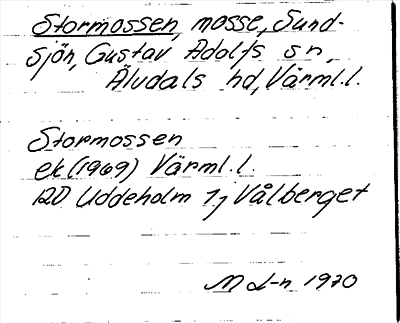 Stormossen, mosse, Sund-
sjön, Gustav Adolfs sn,
Älvdals hd, Värml.l.
Stormossen
ek (1969) Värml.l.
12D Uddeholm 7j Vålberget
M L-n 1970